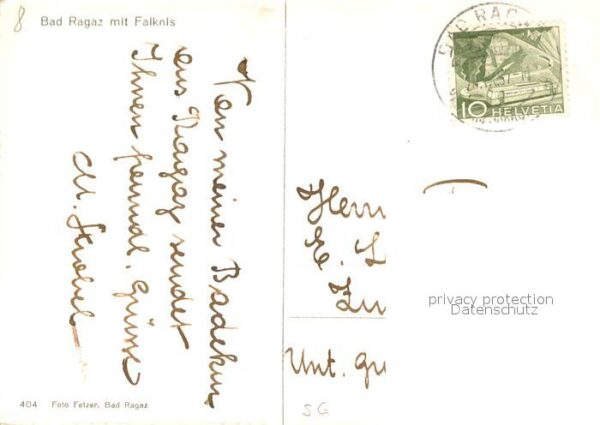 8
Bad Ragaz mit Falknis
Von meiner Badekur
aus Ragaz sendet
Ihnen freundl. Grüsse
M. Strebel
404 Foto Fetzer, Bad Ragaz
BAD RAGAZ
10 HELVETIA
Herrn
E. L
Zu
privacy protection
Datenschutz
Unt. gu
SG